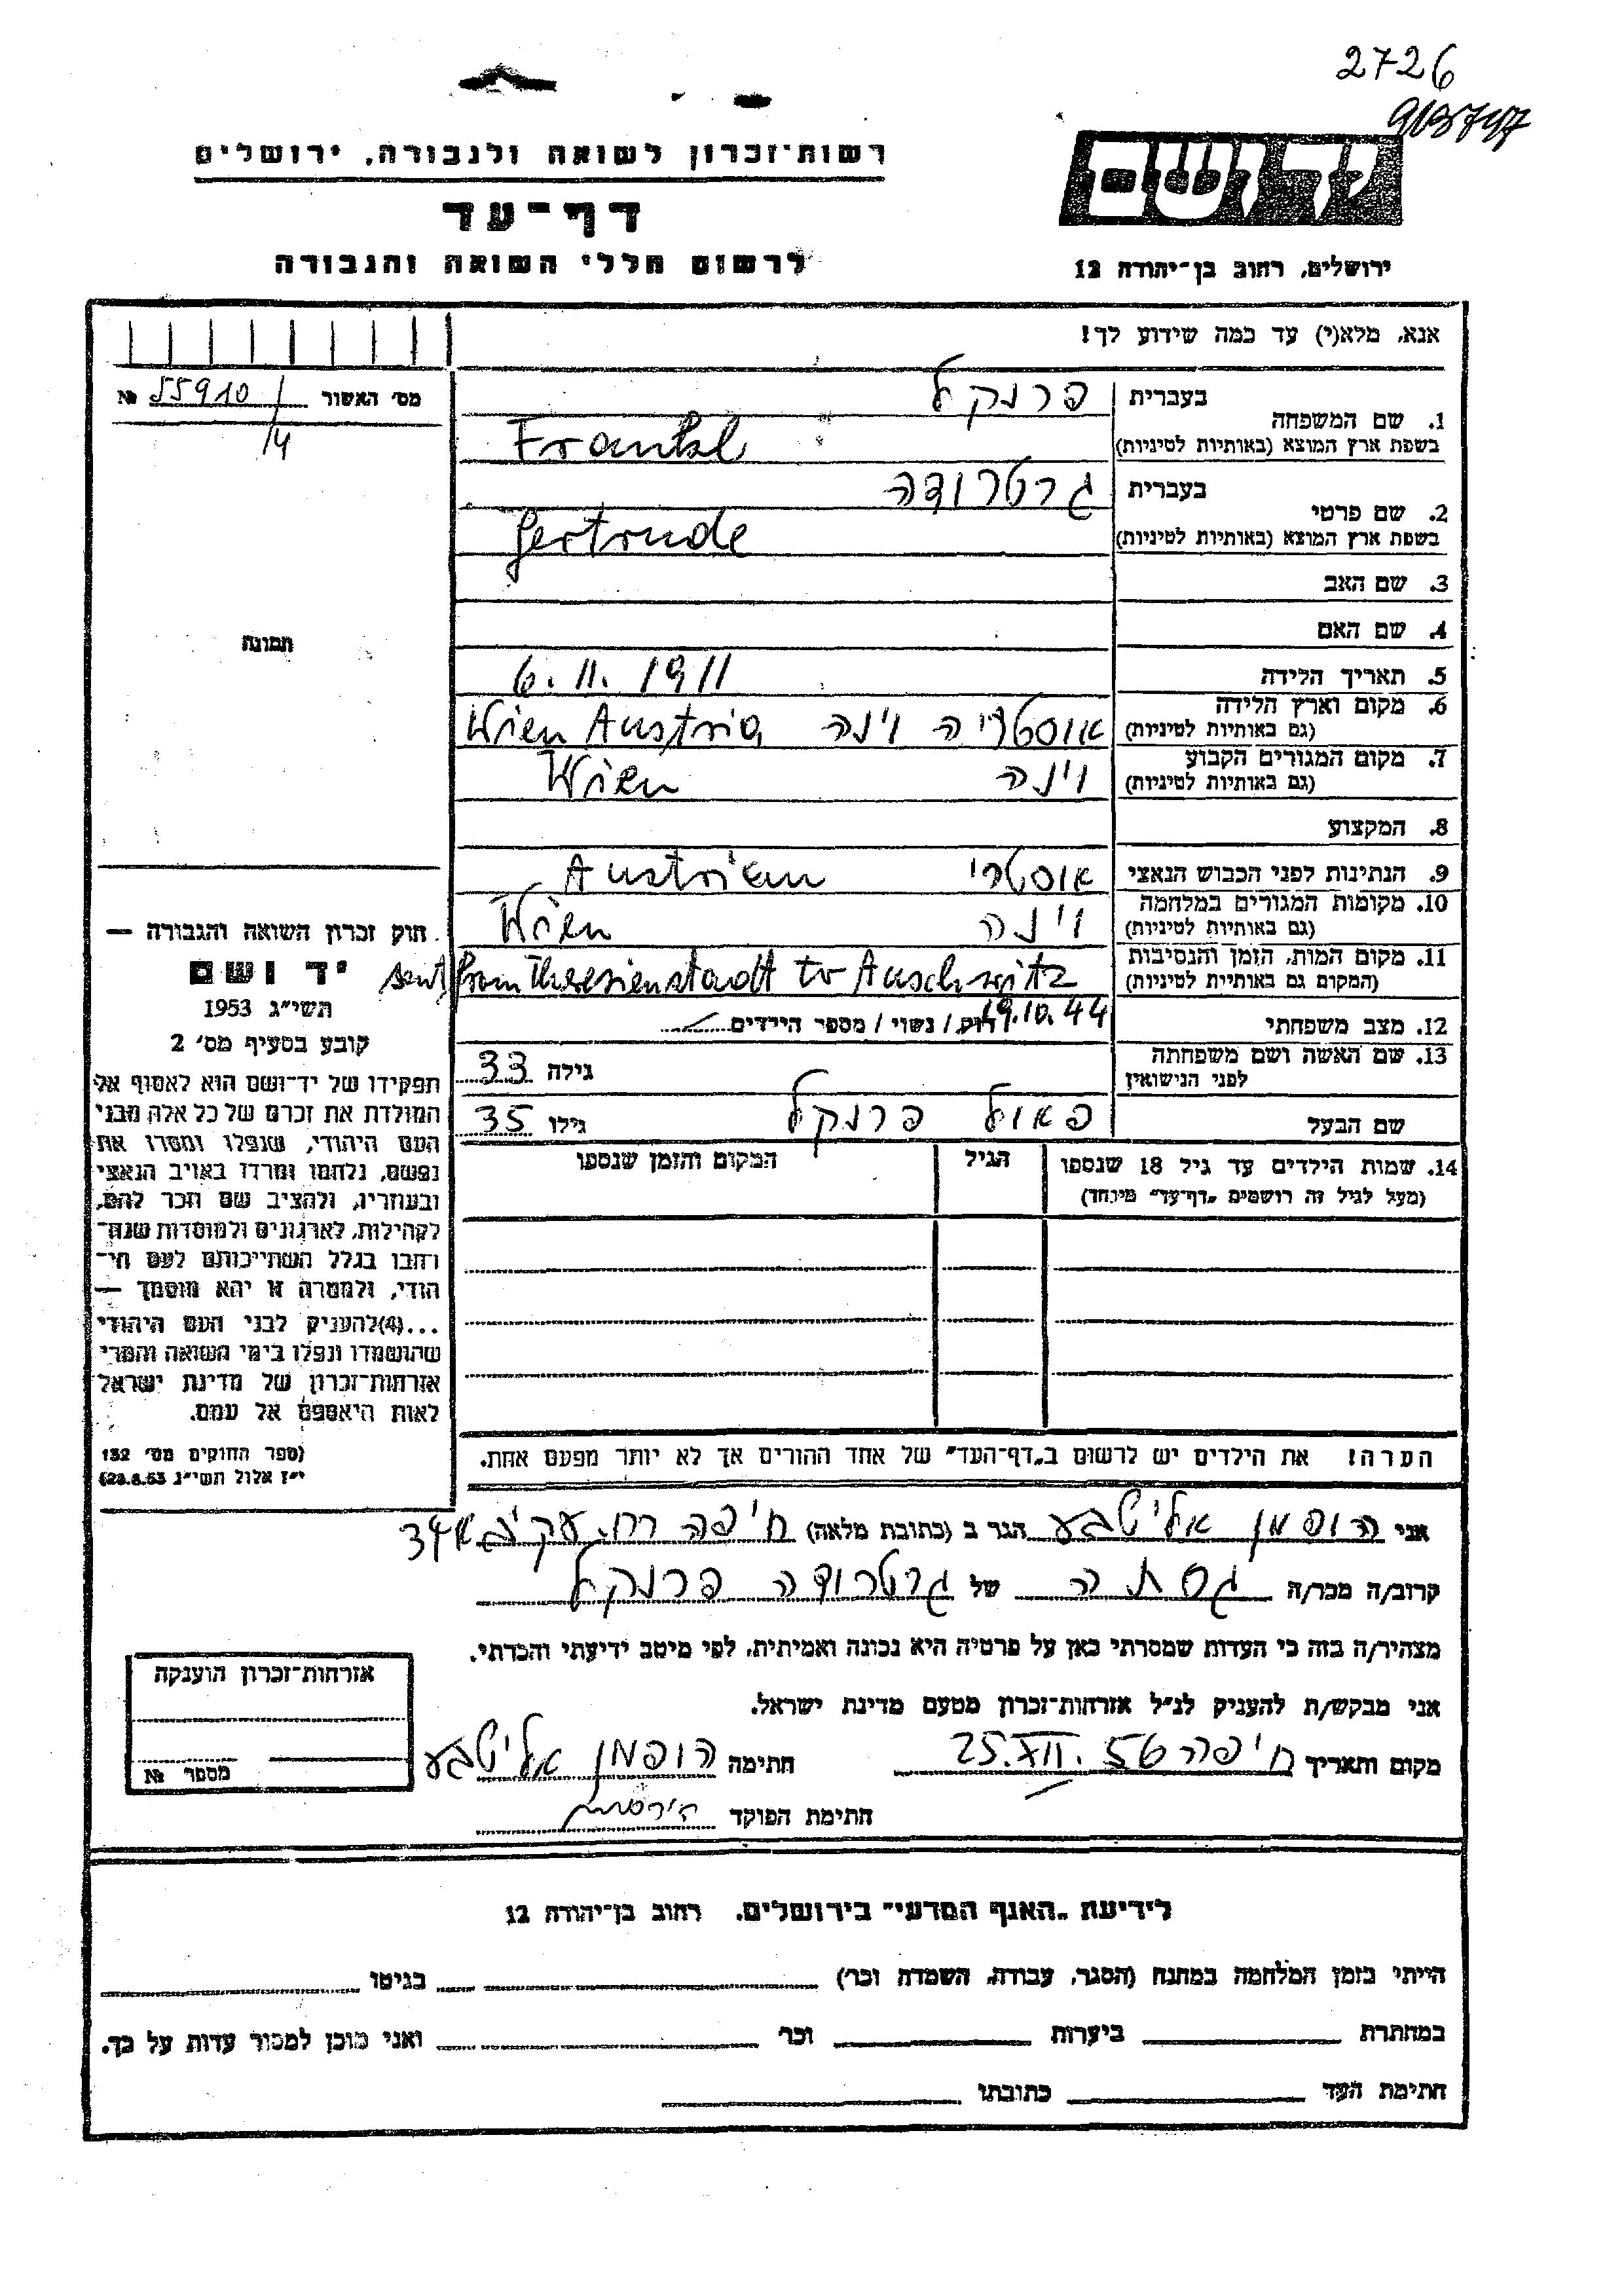 2726
913747
יד ושם
ירושלים, רחוב בן־יהודה 12
רשות־זכרון לשואה ולגבורה, ירושלים
דף־עד
לרשום חללי השואה והגבורה
אנא, מלא(י) עד כמה שידוע לך!
מס' האשור № 55910/
/4
תמונה
בעברית פרנקל
1. שם המשפחה
בשפת ארץ המוצא (באותיות לטיניות) Frankl
בעברית גרטרודה
2. שם פרטי
בשפת ארץ המוצא (באותיות לטיניות) Gertrude
3. שם האב
4. שם האם
5. תאריך הלידה 6. 11. 1911
6. מקום וארץ הלידה
(גם באותיות לטיניות) אוסטריה וינה Wien Austria
7. מקום המגורים הקבוע
(גם באותיות לטיניות) וינה Wien
8. המקצוע
9. הנתינות לפני הכבוש הנאצי אוסטרי Austrian
10. מקומות המגורים במלחמה
(גם באותיות לטיניות) וינה Wien
11. מקום המות, הזמן והנסיבות
(המקום גם באותיות לטיניות) sent from Theresienstadt to Auschwitz
19.10.44
12. מצב משפחתי רווק/ נשוי/ מספר הילדים
13. שם האשה ושם משפחתה
לפני הנישואין גילה 33
שם הבעל פאול פרנקל גילו 35
14. שמות הילדים עד גיל 18 שנספו הגיל המקום והזמן שנספו
(מעל לגיל זה רושמים „דף־עד" מיוחד)
הערה! את הילדים יש לרשום ב„דף־העד" של אחד ההורים אך לא יותר מפעם אחת.
חוק זכרון השואה והגבורה —
יד ושם
תשי"ג 1953
קובע בסעיף מס' 2
תפקידו של יד־ושם הוא לאסוף אל
המולדת את זכרם של כל אלה מבני
העם היהודי, שנפלו ומסרו את
נפשם, נלחמו ומרדו באויב הנאצי
ובעוזריו, ולהציב שם וזכר להם,
לקהילות, לארגונים ולמוסדות שנח־
רחבו בגלל השתייכותם לעם הי־
הודי, ולמטרה זו יהא מוסמך —
...(4)להעניק לבני העם היהודי
שהושמדו ונפלו בימי השואה והמרי
אזרחות־זכרון של מדינת ישראל
לאות היאספם אל עמם.
(ספר החוקים מס' 132
י"ז אלול תשי"ג 28.8.53)
אני הופמן אלישבע הגר ב (כתובת מלאה) חיפה רח. עקיבא 34
קרוב/ה מכר/ה גסתה של גרטרודה פרנקל
מצהיר/ה בזה כי העדות שמסרתי כאן על פרטיה היא נכונה ואמיתית, לפי מיטב ידיעתי והכרתי.
אני מבקש/ת להעניק לנ"ל אזרחות־זכרון מטעם מדינת ישראל.
מקום ותאריך חיפה 25.XII.56 חתימה הופמן אלישבע
חתימת הפוקד
אזרחות־זכרון הוענקה
מספר №
לידיעת „האגף המדעי" בירושלים, רחוב בן־יהודה 12
הייתי בזמן המלחמה במחנה (הסגר, עבודה, השמדה וכו') בגיטו
במחתרת ביערות וכו' ואני מוכן למסור עדות על כך.
חתימת העד כתובתו